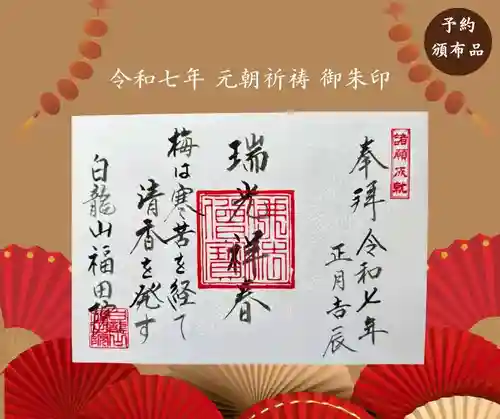 予約
頒布品
令和七年 元朝祈祷 御朱印
諸願成就
奉拝 令和七年
正月吉辰
瑞光祥春
梅は寒苦を経て
清香を発す
白龍山福田